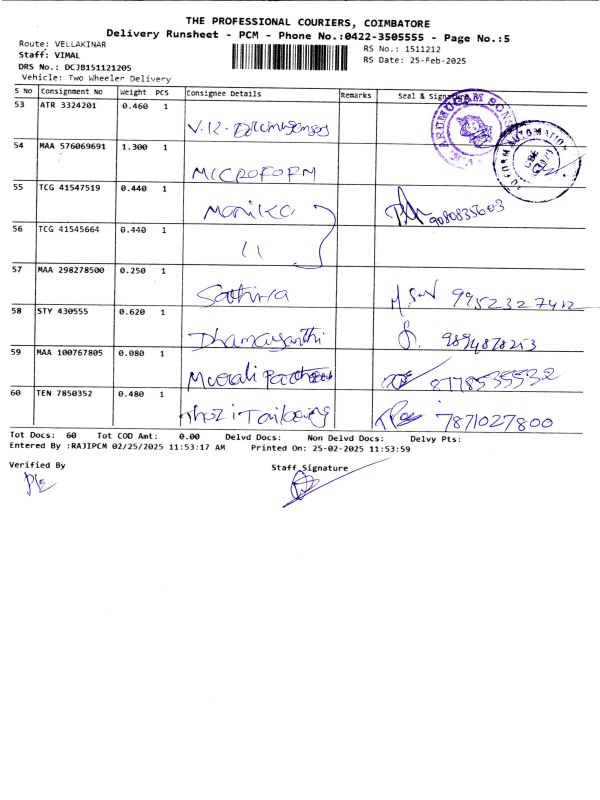 THE PROFESSIONAL COURIERS, COIMBATORE
Delivery Runsheet - PCM - Phone No.:0422-3505555 - Page No.:5
Route: VELLAKINAR
RS No.: 1511212
Staff: VIMAL
RS Date: 25-Feb-2025
DRS No.: DCJB151121205
Vehicle: Two Wheeler Delivery
S No Consignment No Weight PCS Consignee Details Remarks Seal &
53 ATR 3324201 0.460 1
54 MAA 576069691 1.300 1
MICROFORM
55 TCG 41547519 0.440 1
Monika 9080835603
56 TCG 41545664 0.440 1
11
57 MAA 298278500 0.250 1
9952327412
58 STY 430555 0.620 1
Dhamayanthi
59 MAA 100767805 0.080 1
Murali 8778535532
60 TEN 7850352 0.480 1
7871027800
Tot Docs: 60 Tot COD Amt: 0.00 Delvd Docs: Non Delvd Docs: Delvy Pts:
Entered By :RAJIPCM 02/25/2025 11:53:17 AM Printed On: 25-02-2025 11:53:59
Verified By
Staff Signature